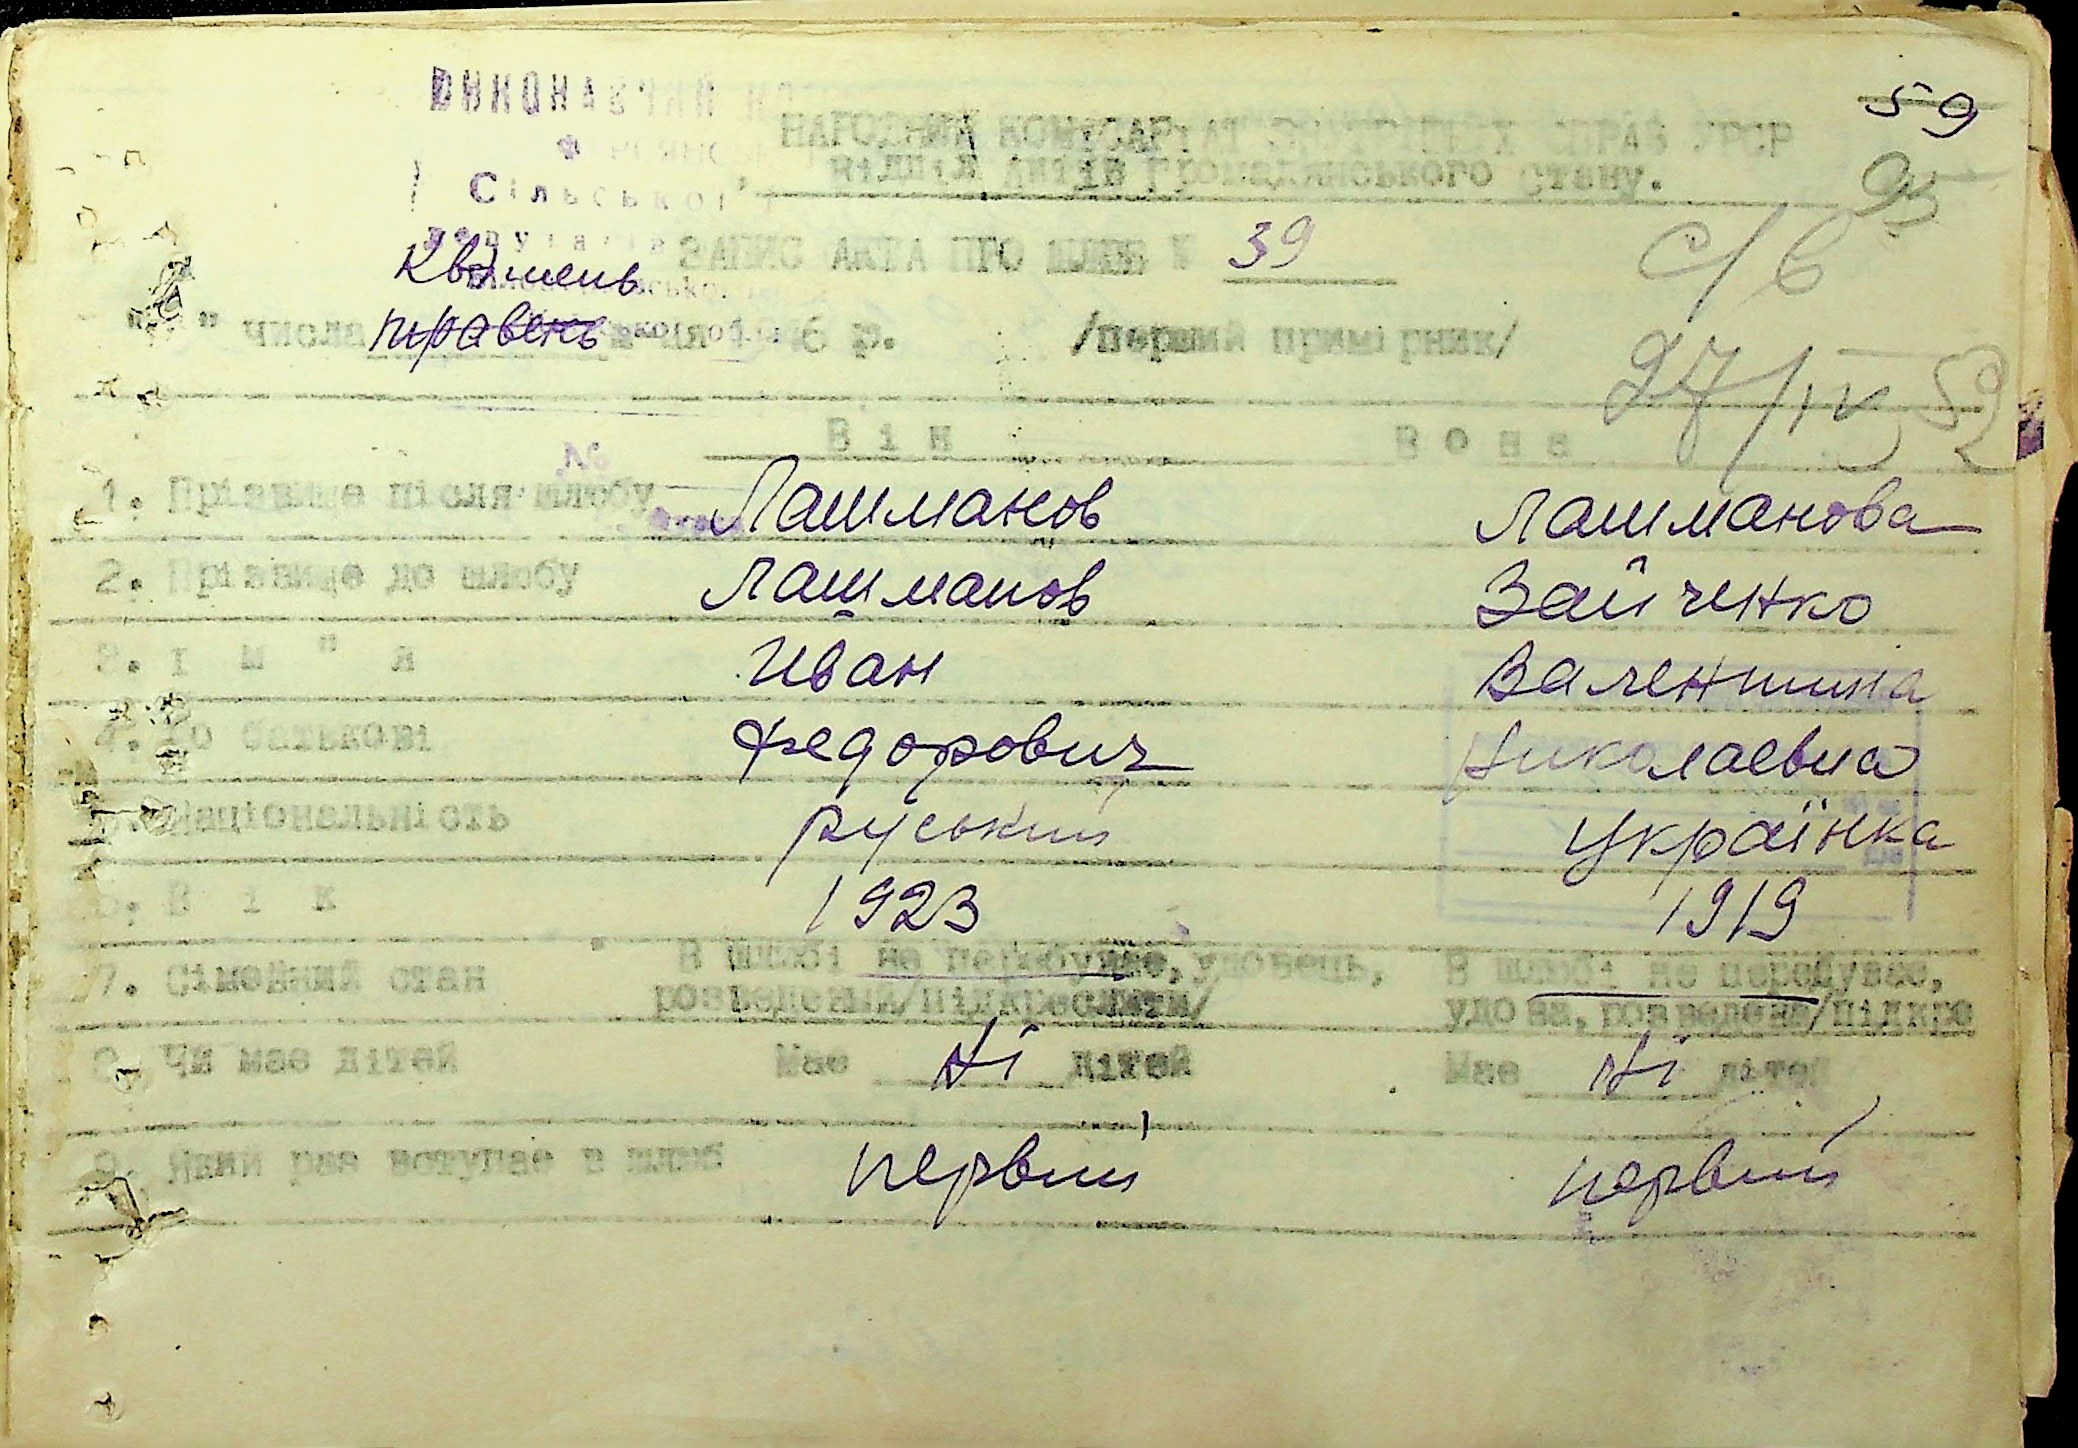 ВИКОНАВЧИЙ
59
НАРОДНИЙ КОМІСАРІАТ ВНУТРІШНІХ СПРАВ УРСР
95
відділ актів громадянського стану.
Сільської
депутатів
ЗАПИС АКТА ПРО ШЛЮБ № 39
с/б
Квітень
"" числа травень 6 р. /перший примірник/
27/IV 59
Він Вона
№
1. Прізвище після шлюбу Лашманов Лашманова
2. Прізвище до шлюбу Лашманов Зайченко
3. І м " я Иван Валентина
4. По батькові Федорович Николаевна
5. Національність руський українка
6. В і к 1923 1919
7. Сімейний стан В шлюбі не перебуває, удовець, В шлюбі не перебуває,
розведений/підкреслити/ удова, розведена/підкре
8. Чи має дітей Має Ні дітей Має Ні дітей
9. Який раз вступає в шлюб первий первий